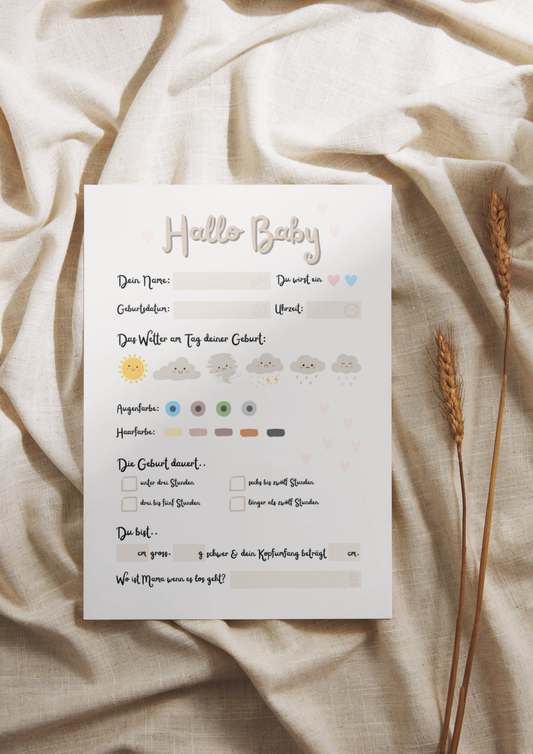 Hallo Baby
Dein Name: Du wirst ein
Geburtsdatum: Uhrzeit:
Das Wetter am Tag deiner Geburt:
Augenfarbe:
Haarfarbe:
Die Geburt dauert..
unter drei Stunden sechs bis zwölf Stunden
drei bis fünf Stunden länger als zwölf Stunden
Du bist..
cm gross. g schwer & dein Kopfumfang beträgt cm.
Wo ist Mama wenn es los geht?